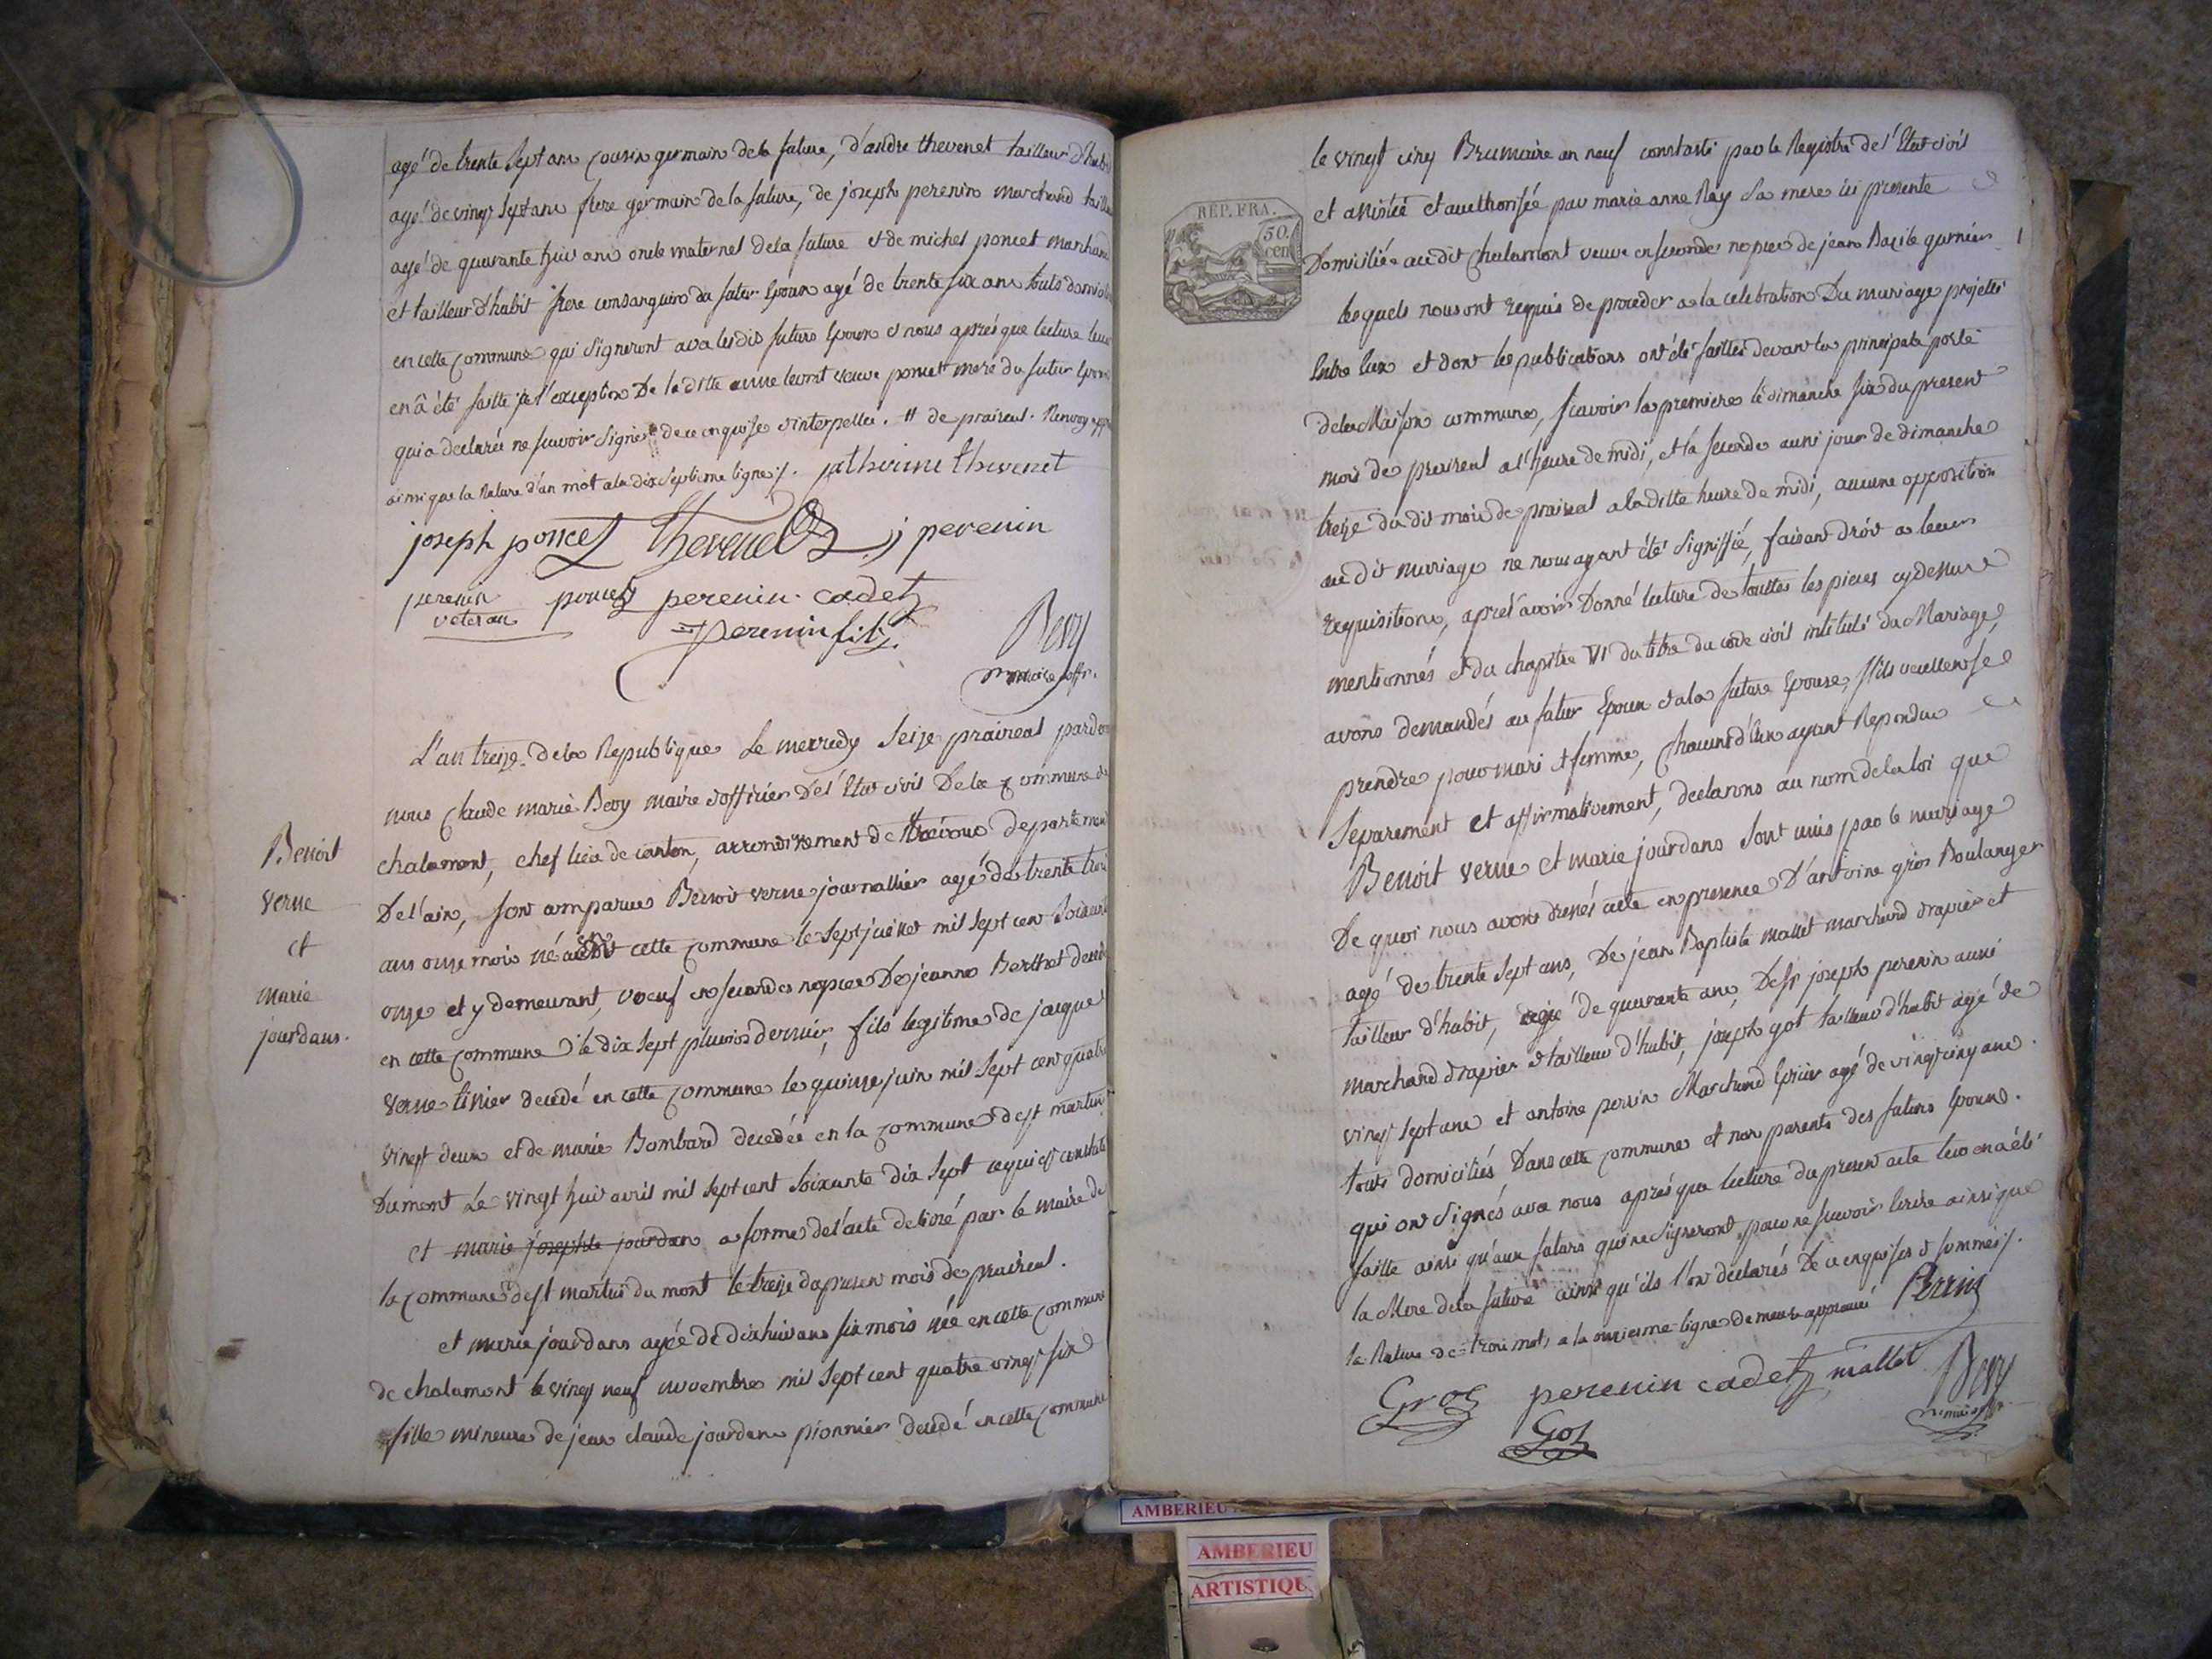 agé de trente sept ans cousin germain de la future, d'andre thevenet tailleur d'habit
agé de vingt sept ans frere germain de la future, de joseph perenin marchand taille
agé de quarante huit ans oncle maternel de la future et de michel poncet marchand
et tailleur d'habit frere consanguin du futur Epoux agé de trente six ans touts domicilié
en cette commune qui signeront avec lesdis futurs Epoux et nous après que lecture leur
en â été faitte à l'exception de la ditte veuve poncet mere du futur Epoux
qui a declarée ne scavoir signer de ce enquise et interpellee. // de praireal. Renvoy app
ainsi que la Rature d'un mot a la dix septieme ligne ./. catherine thevenet
joseph poncet thevenet j perenin
perenin poncet perenin cadet
veteran perenin fils Bevy
maire off.
L'an treize de la Republique Le mecredy seize praireal pardevant
nous Claude marie Bevy maire et officier de l'Etat civil de la commune de
Benoit
verne
et
marie
jourdans.
chalamont, chef lieu de canton, arrondissement de trévoux departement
De l'ain, sont comparus Benoit verne journallier agé de trente trois
ans onze mois né en cette commune le sept juillet mil sept cent soixante
onze et y demeurant, voeuf en secondes nopces De jeanne Berthet decedé
en cette commune le dix sept pluviose dernier, fils legitime de jacque
verne tissier decedé en cette commune le quinze juin mil sept cent quatre
vingt deux et de marie Bombard decedée en la commune de st martin
Dumont Le vingt huit avril mil sept cent soixante dix sept ce qui est constaté
et marie josephte jourdan a forme de l'acte delivré par le maire de
la commune de st martin du mont le treize du present mois de praireal.
et marie jourdans agée de dix huit ans six mois née en cette commune
de chalamont le vingt neuf novembre mil sept cent quatre vingt six
fille mineure de jean claude jourdan pionnier decedé en cette commune
REP. FRA.
50.
cen
le vingt cinq Brumaire an neuf constaté par le Registre de l'Etat civil
et assistée et authorisée par marie anne Rey sa mere ici presente
Domiciliée au dit Chalamont veuve en secondes nopces de jean Bazile garnier
lesquels nous ont requis de proceder a la celebration Du mariage projetté
Entre Eux et dont les publications ont été faittes devant la principale porte
de la Maison commune, scavoir la premiere le dimanche six du present
mois de praireal a l'heure de midi, et la seconde aussi jour de dimanche
treize du dit mois de praireal a la ditte heure de midi, aucune opposition
au dit mariage ne nous ayant été signiffié, faisant droit a leur
requisition, après avoir Donné lecture de touttes les pieces cy dessus
mentionnés et du chapitre VI du titre du code civil intitulé du Mariage,
avons demandés au futur Epoux et a la future Epouse, s'ils veullent se
prendre pour mari et femme, chacun d'Eux ayant Repondu
separement et affirmativement, declarons au nom de la loi que
Benoit verne et marie jourdans sont unis par le mariage
De quoi nous avons dressés acte en presence D'antoine gros Boulanger
agé de trente sept ans, De jean Baptiste mallet marchand drapier et
tailleur d'habit, agé de quarante ans, De sr joseph perenin aussi
marchand drapier et tailleur d'habit, joseph got tailleur d'habit agé de
vingt sept ans et antoine perrin Marchand Epicier agé de vingt cinq ans.
touts domiciliés Dans cette commune et non parents des futurs Epoux.
qui ont signés avec nous après que lecture du present acte leur en a été
faitte ainsi qu'aux futurs qui ne signeront pour ne scavoir Ecrire ainsi que
la Mere de la future ainsi qu'ils l'on declarés De ce enquises et sommés ./.
la Rature de trois mots a la onzieme ligne demeure approuvé Perrin
Gros perenin cadet mallet Bevy
Got maire off.
AMBERIEU
AMBERIEU
ARTISTIQU